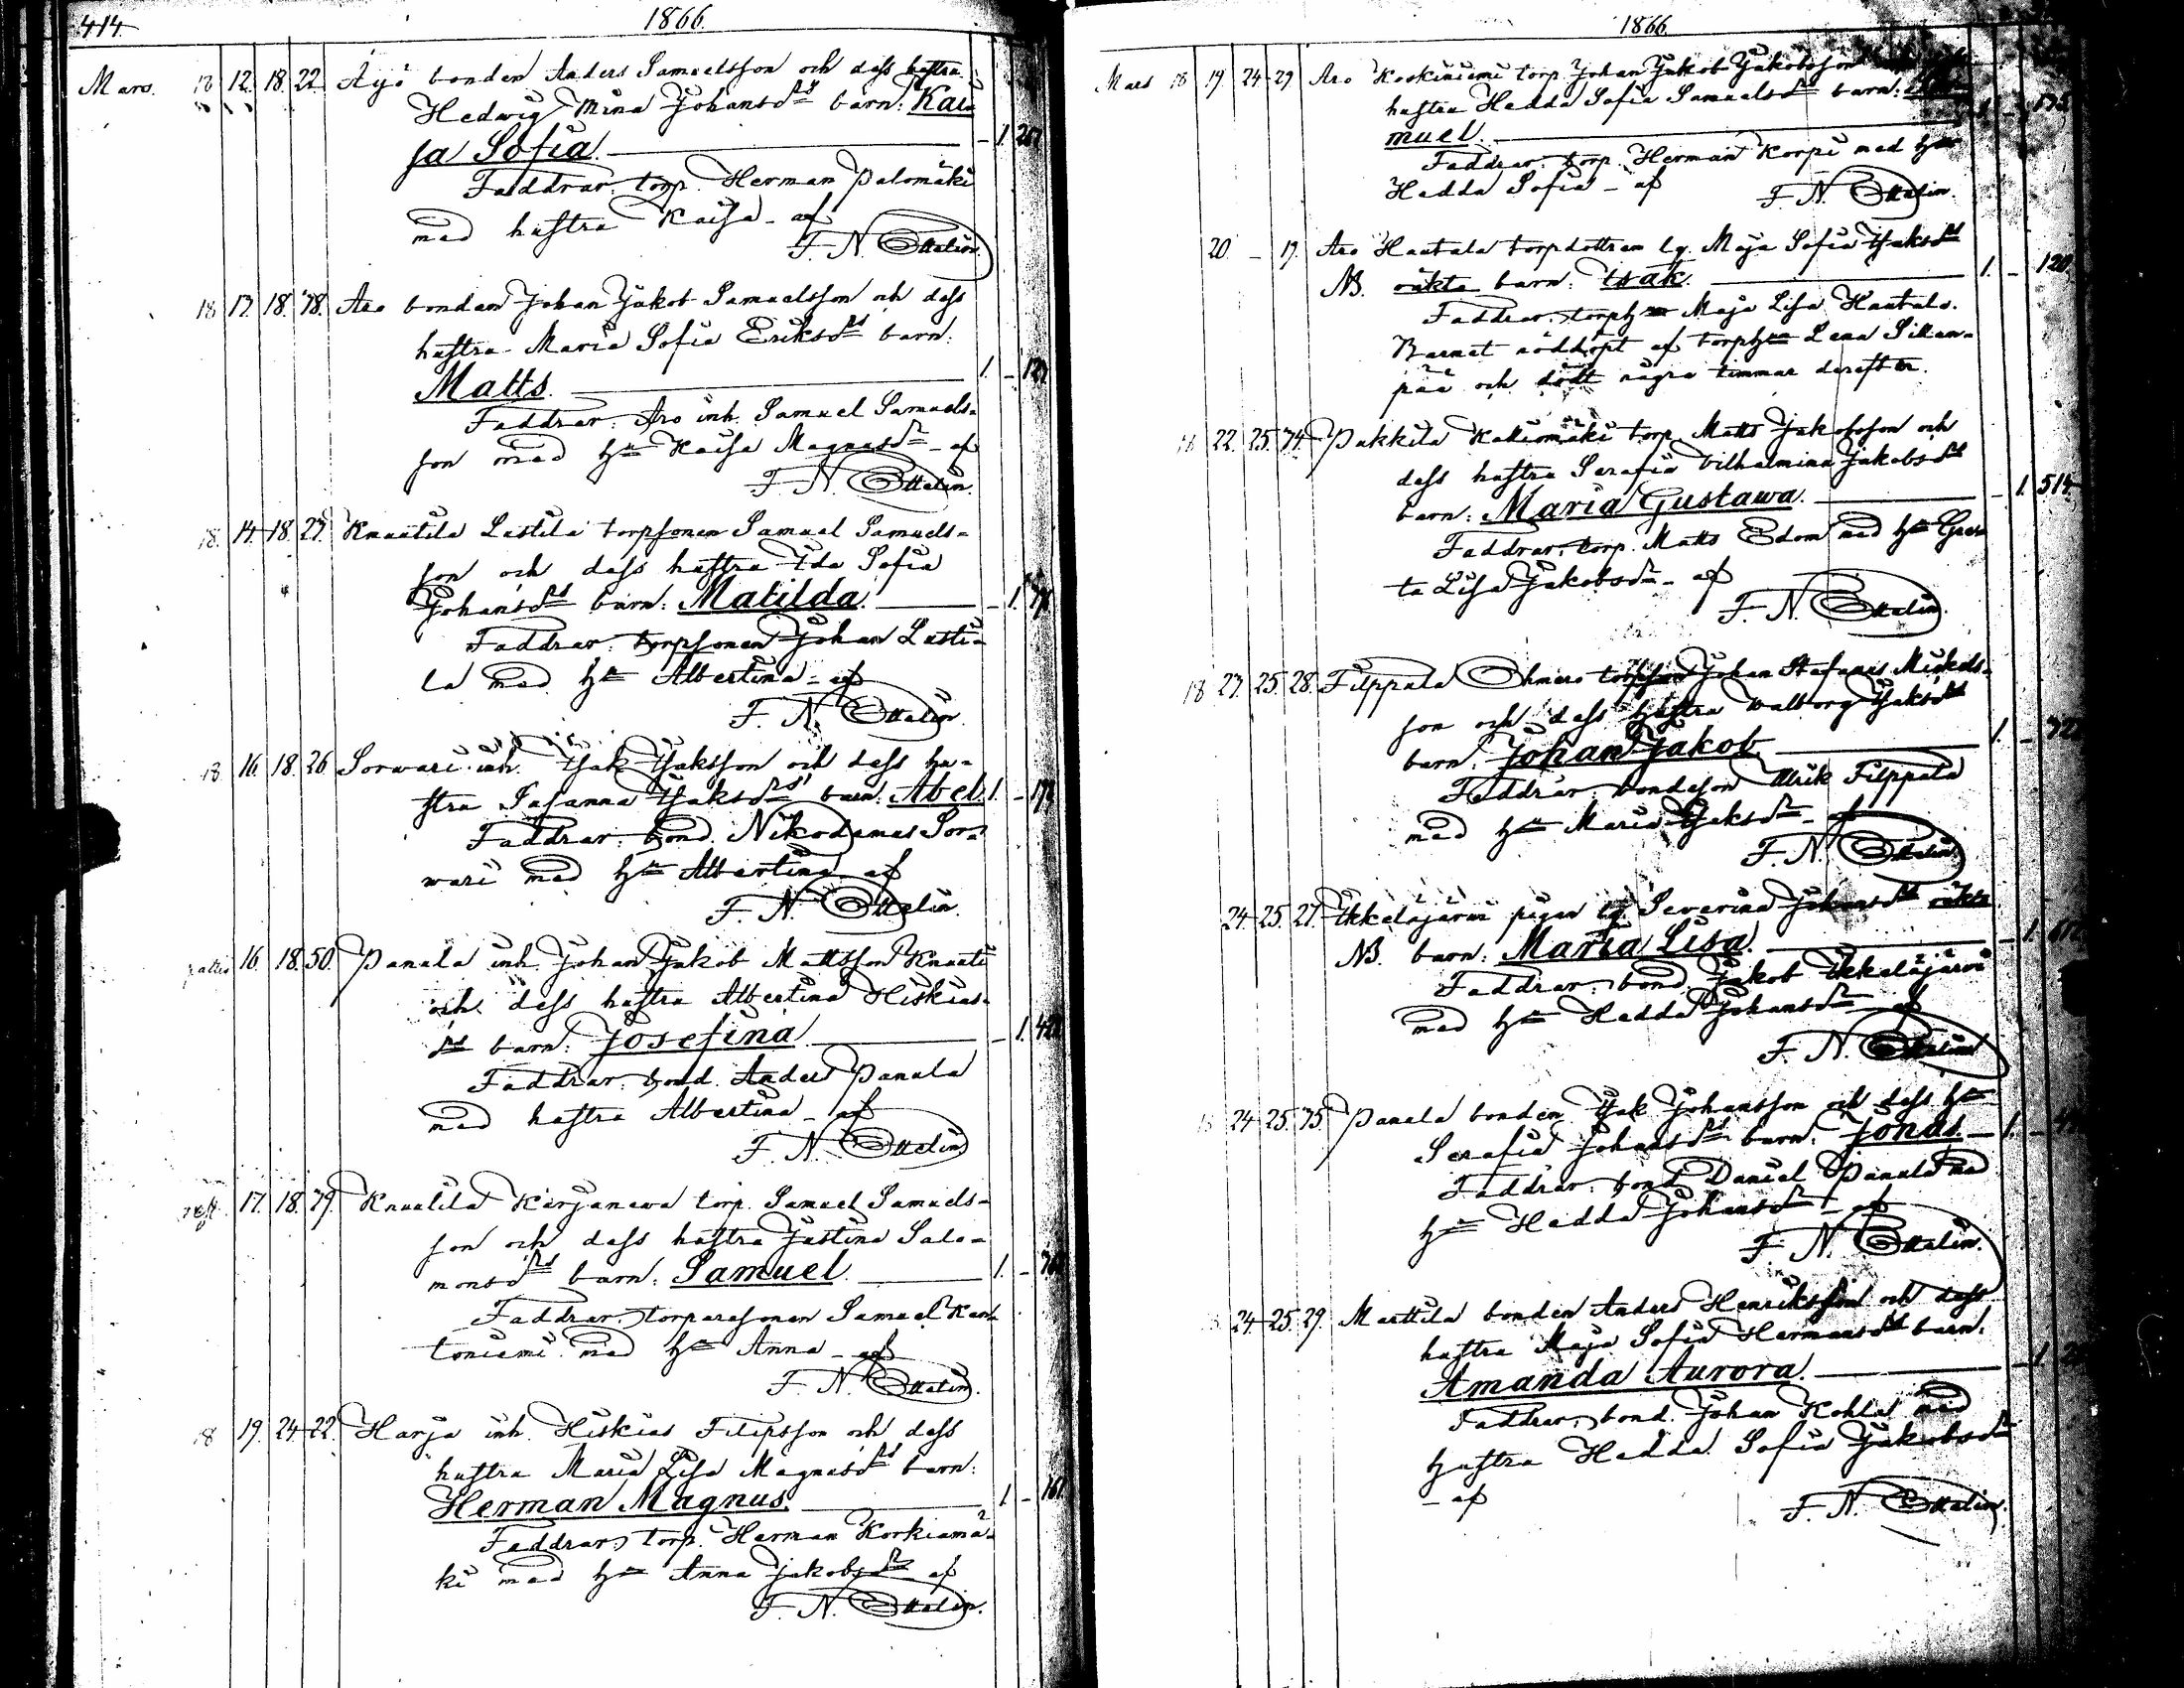 414.
1866.
Mars. 18 12. 18. 22. Äijö bonden Anders Samuelsson och dess hustru
Hedwig Mina Johansdrs barn: Kai-
sa Sofia. – 1. 267
Faddrar: torp. Herman Palomäki
med hustru Kaisa – af
F. N. Ottelin.
18 17. 18. 78. Aro bonden Johan Jakob Samuelsson och dess
hustru Maria Sofia Eriksdrs barn:
Matts. 1. – 127
Faddrar: Aro inh. Samuel Samuels-
son med hu Kaisa Magnusdr – af
F. N. Ottelin.
18. 14. 18. 27. Knuutila Lastila torpsonen Samuel Samuels-
son och dess hustru Ida Sofia
Johansdrs barn: Matilda. – 1.
Faddrar: torpsonen Johan Lasti-
la med hu Albertina – af
F. N. Ottelin.
18 16. 18. 26. Sorwari inh. Isak Isaksson och dess hu-
stru Susanna Isaksdrs barn: Abel. 1. –
Faddrar: bond. Nikodemus Sor-
wari med hu Albertina af
F. N. Ottelin.
16. 18. 50. Panula inh. Johan Jakob Mattsson Knuuti
och dess hustru Albertina Hiskias-
drs barn: Josefina. – 1.
Faddrar: bond. Anders Panula
med hustru Albertina – af
F. N. Ottelin
17. 18. 29. Knuutila Karjanewa torp. Samuel Samuels-
son och dess hustru Justina Salo-
monsdrs barn: Samuel. 1. –
Faddrar: torparesonen Samuel Kan-
toniemi med hu Anna – af
F. N. Ottelin.
18 19. 24. 22. Harja inh. Hiskias Filipsson och dess
hustru Maria Lisa Magnusdrs barn:
Herman Magnus. 1. – 161.
Faddrar: torp. Herman Korkiamä-
ki med hu Anna Jakobsdr af
F. N. Ottelin.
1866.
Mars 18 19. 24. 29. Aro Koskiniemi torp. Johan Jakob Jakobsson
hustru Hedda Sofia Samuelsdrs barn:
muel.
Faddrar: torp. Herman Korpi med hu
Hedda Sofia – af F. N. Ottelin.
20. – 17. Aro Hautala torpdottren lg. Maja Sofia Isaksdrs
NB. oäkta barn: Isak. 1. – 120
Faddrar: torph Maja Lisa Hautala.
Barnet nöddöpt af torphun Lena Sillan-
pää och dödt några timmar derefter.
18 22. 25. 74. Pukkila Kalliomäki torp. Matts Jakobsson och
dess hustru Serafia Vilhelmina Jakobsdrs
barn: Maria Gustawa. – 1. 514
Faddrar: torp. Matts Edom med hu Gre-
ta Lisa Jakobsdr – af
F. N. Ottelin.
18 23. 25. 28. Filppula torpson Johan Stefanus Mickels-
son och dess hustru Walborg Isaksdrs
barn: Johan Jakob 1. –
Faddrar: bondeson Ulrik Filppula
med hu Maria Isaksdr – af
F. N. Ottelin
24. 25. 27. Ikkeläjärvi pigan lg. Severina Johansdrs oäkta
NB. barn: Maria Lisa. – 1.
Faddrar: bond. Jakob Ikkeläjärvi
med hu Hedda Johansdr – af
F. N. Ottelin
24. 25. 35. Panula bonden Isak Johansson och dess hu
Serafia Johansdrs barn: Jonas. – 1. –
Faddrar: bond Daniel Panula med
hu Hedda Johansdr – af
F. N. Ottelin.
24. 25. 29. Marttila bonden Anders Henriksson och dess
hustru Maja Sofia Hermansdrs barn:
Amanda Aurora. – 1.
Faddrar: bond. Johan Kohla med
hustru Hedda Sofia Jakobsdr
– af F. N. Ottelin.